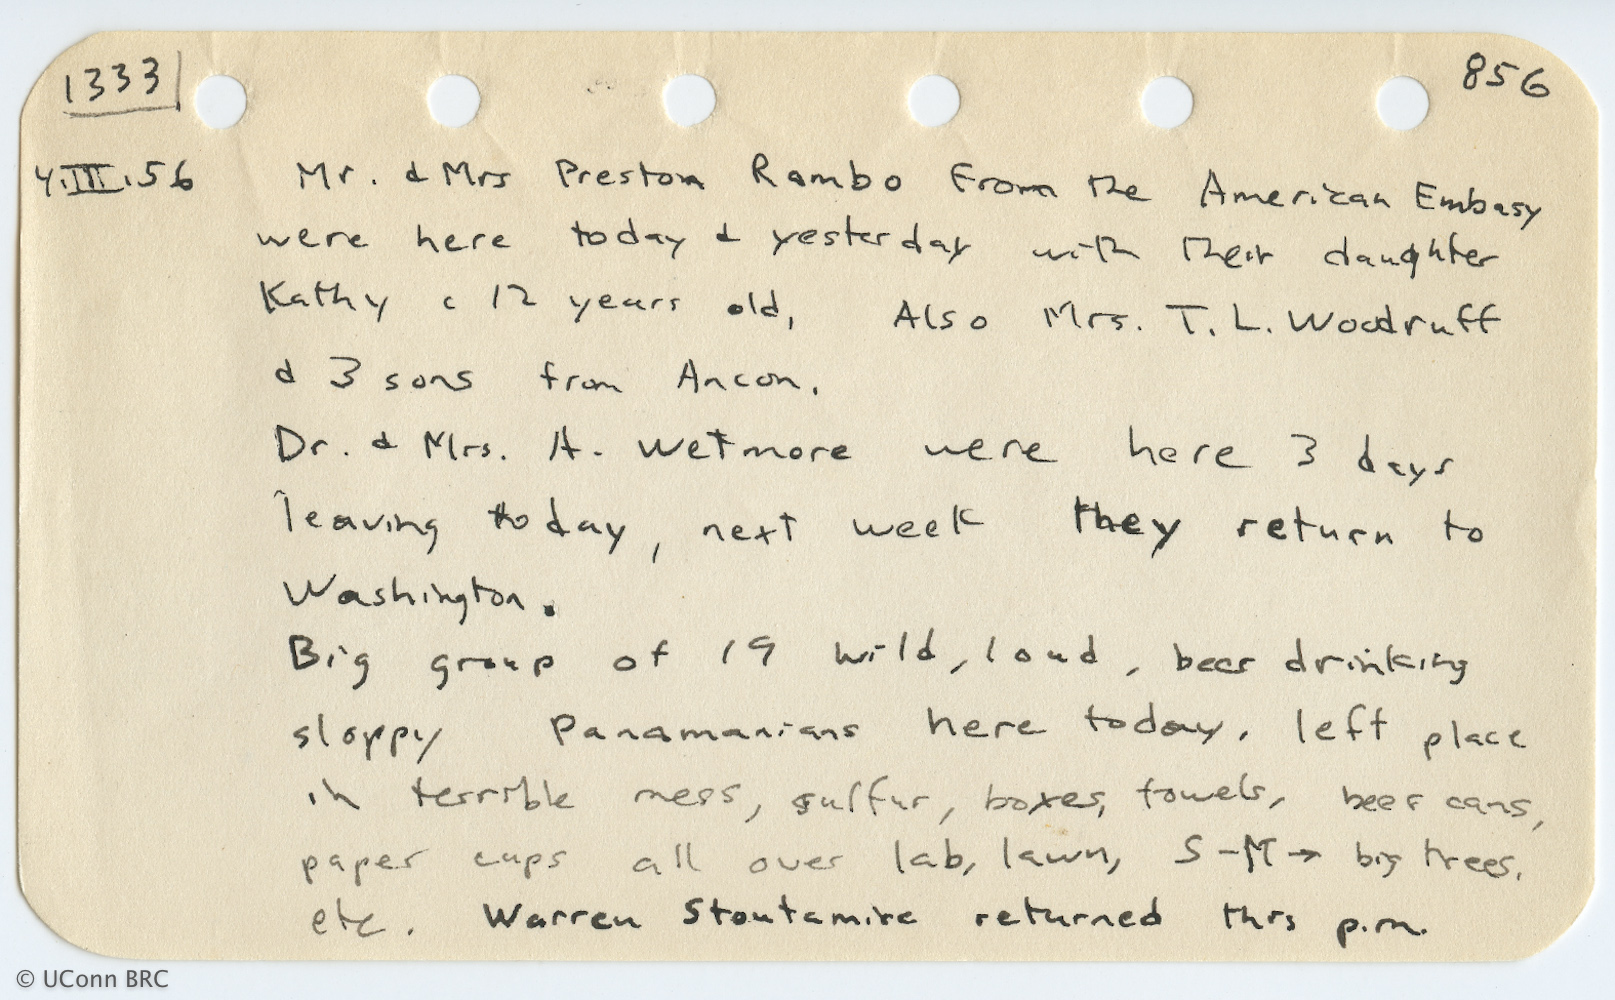 1333
856
4.III.56 Mr. & Mrs Preston Rambo from the American Embasy
were here today & yesterday with their daughter
Kathy c 12 years old, Also Mrs. T. L. Woodruff
& 3 sons from Ancon.
Dr. & Mrs. A. Wetmore were here 3 days
leaving today, next week they return to
Washington.
Big group of 19 wild, loud, beer drinking
sloppy Panamanians here today. left place
in terrible mess, sulfur, boxes, towels, beer cans,
paper cups all over lab, lawn, S-M → big trees.
etc. Warren Stoutamire returned this p.m.
© UConn BRC